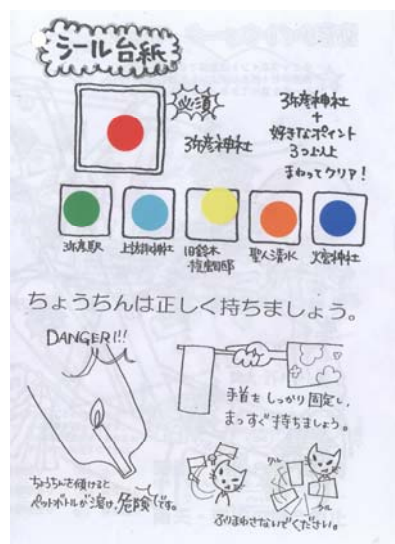 シール台紙
必須
弥彦神社
弥彦神社
+
好きなポイント
3つ以上
まわってクリア!
弥彦駅
上諏訪神社
旧鈴木
権蔵邸
聖人清水
火宮神社
ちょうちんは正しく持ちましょう。
DANGER!!!
手首をしっかり固定し、
まっすぐ持ちましょう。
ちょうちんを傾けると
ペットボトルが溶け、危険です。
クル
クル
ふりまわさないでください。